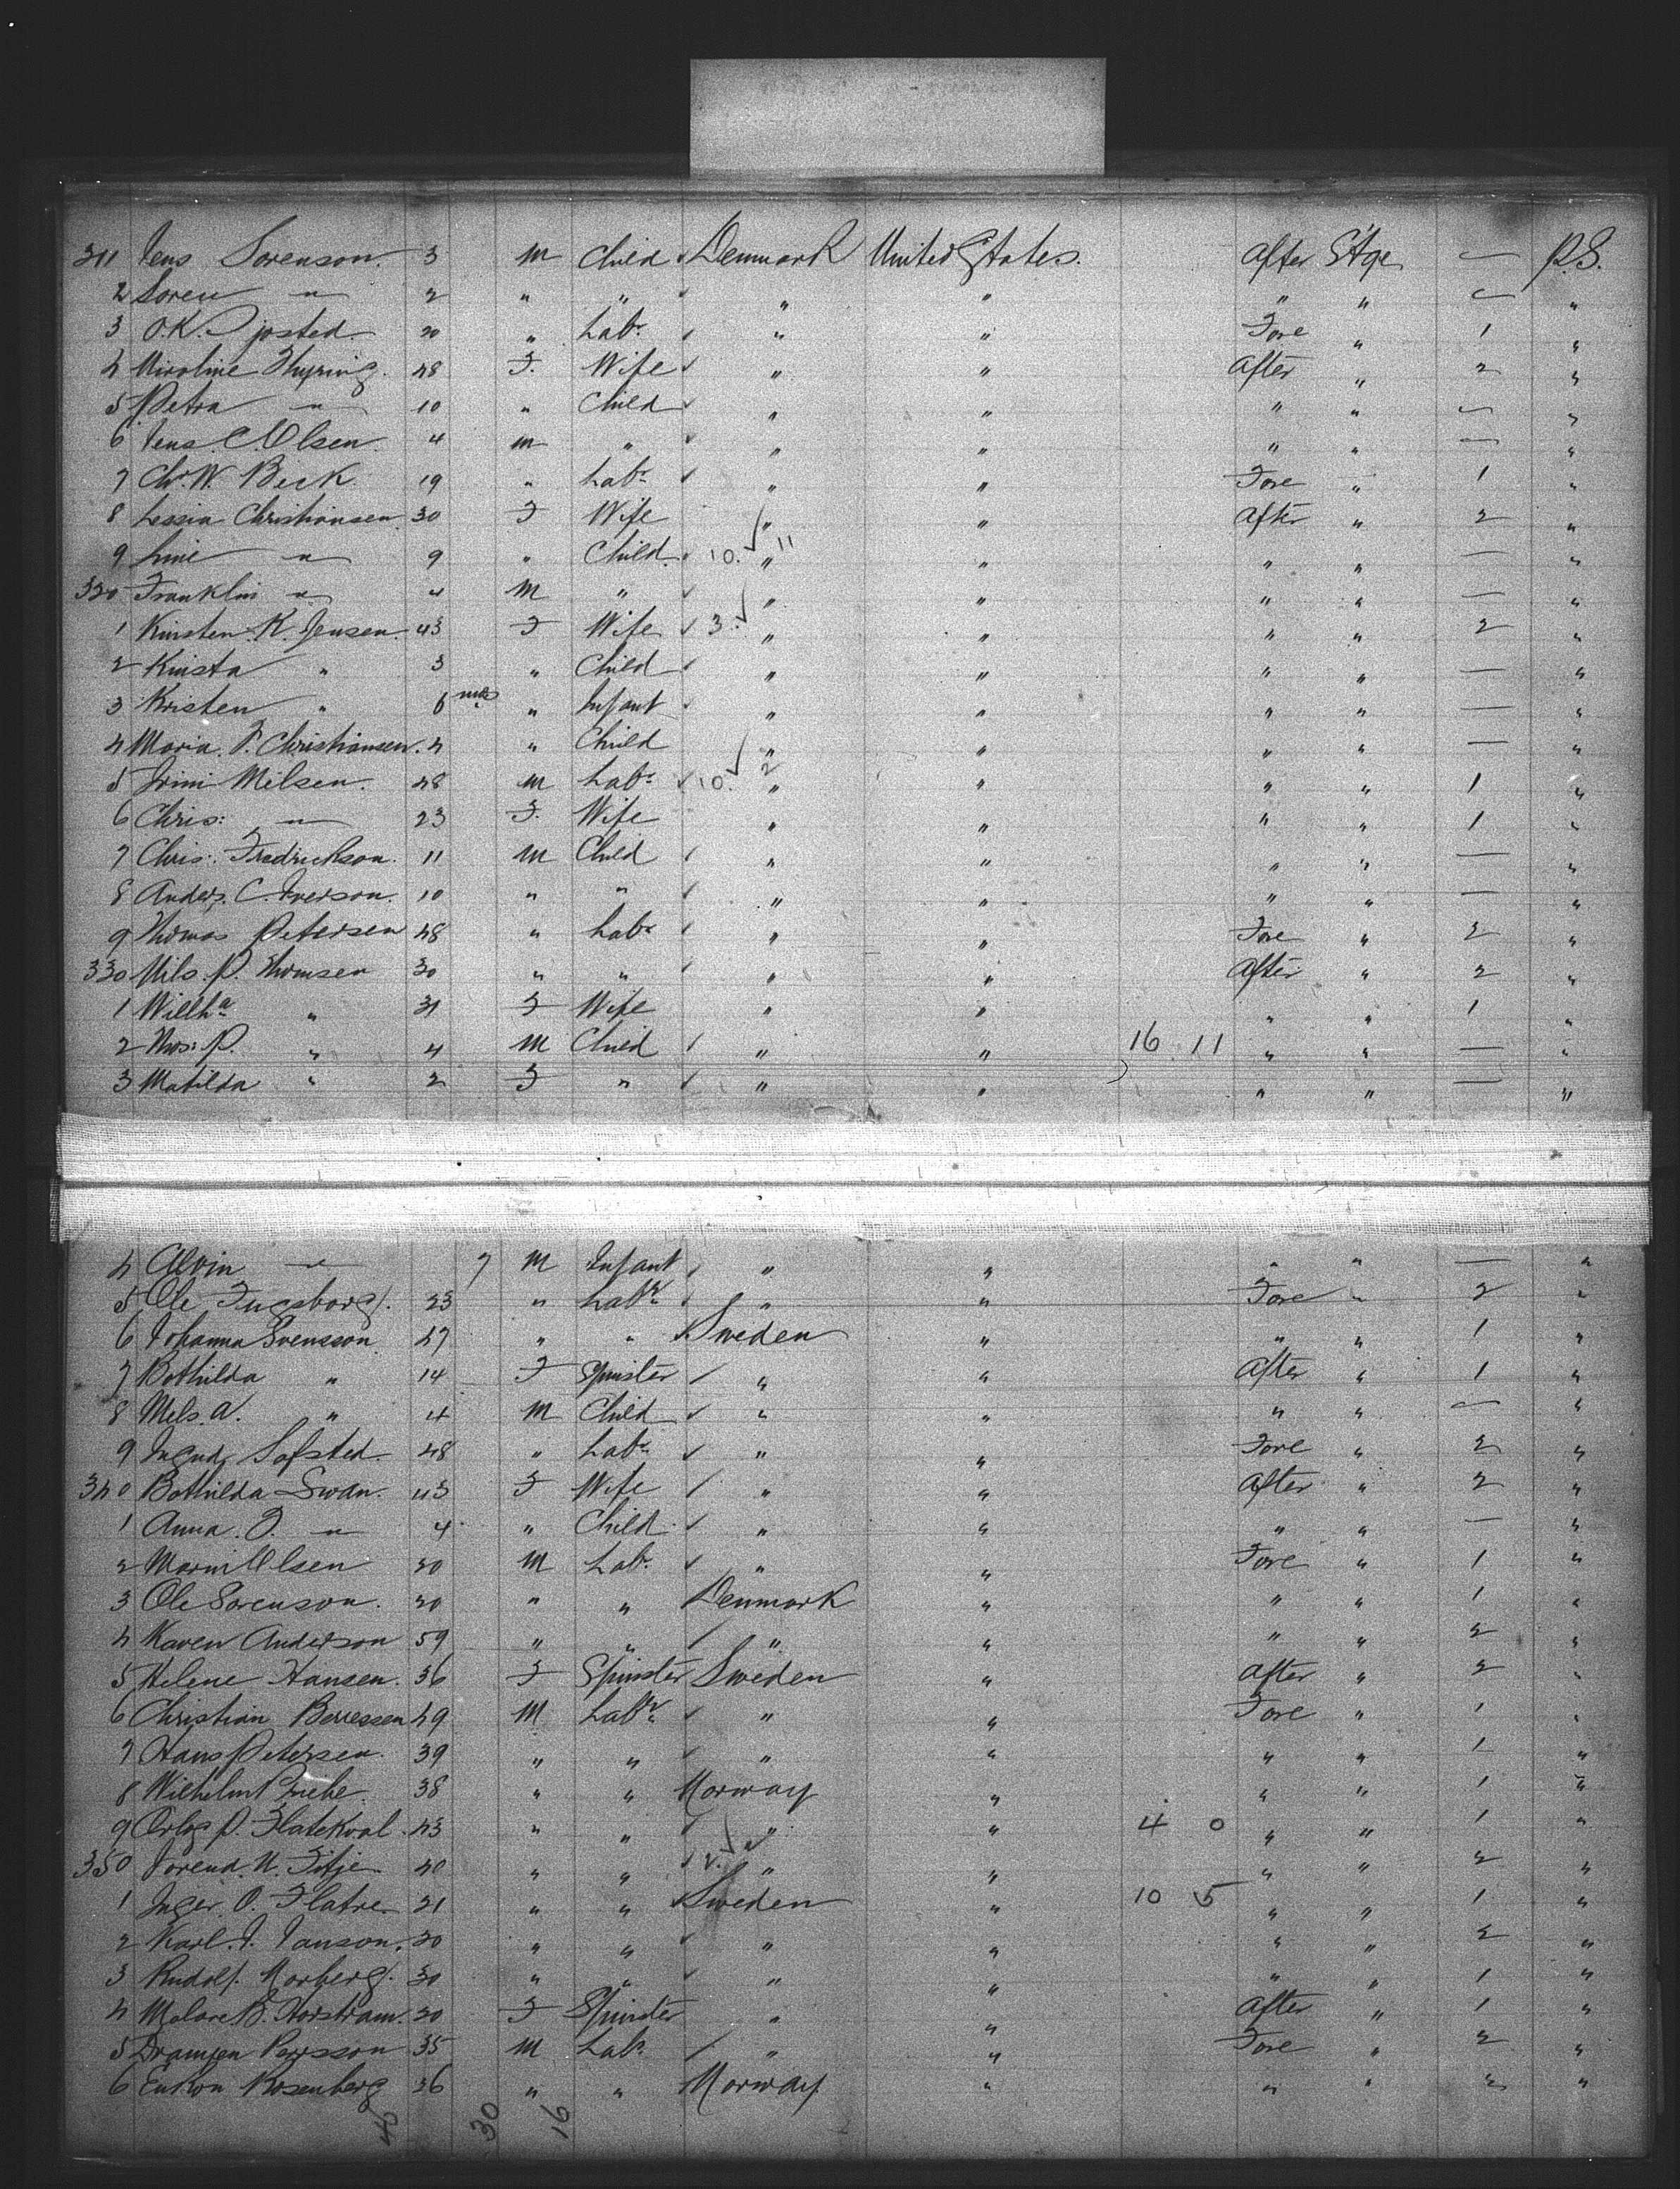 311 Jens Sorenson. 3 M Child Denmark United States. After Stge — P.S.
2 Soren " 2 " " " " " " — "
3 O.K. Sjosted. 20 " Labr " " Fore " 1 "
4 Nicoline Thyring. 48 F. Wife " " After " 2 "
5 Petra " 10 " Child " " " " — "
6 Jens. C. Olsen. 4 M " " " " " — "
7 Chr. W. Bick 19 " Labr " " Fore " 1 "
8 Lessia Christiansen 30 F Wife " " After " 2 "
9 Line " 9 " Child. 10. " 11 " " " — "
320 Franklin " 4 M " " " " " — "
1 Kirsten. K. Jensen. 43 F Wife 3. " " " " 2 "
2 Kirsta " 3 " Child " " " " — "
3 Kristen " 6 mos " Infant " " " " — "
4 Maria. P. Christiansen. 4 " Child " " " " — "
5 Nielsen. 28 M Labr 10. " 2 " " " 1 "
6 Chris: " 23 F. Wife " " " " 1 "
7 Chris: Fredrickson. 11 M Child " " " " — "
8 Anders. C. Iverson. 10 " " " " " " — "
9 Thomas Petersen 48 " Labr " " Fore " 2 "
330 Nils. P. Thomsen 30 " " " " After " 2 "
1 Willha " 31 F Wife " " " " 1 "
2 Thos: P. " 4 M Child " " 16 11 " " — "
3 Matilda " 2 F " " " " " — "
4 Alvin " 7 M Infant " " " " — "
5 Ole Fugsborg. 23 " Labr " " Fore " 2 "
6 Johanna Svensson 47 " " Sweden " " " 1 "
7 Bothilda " 14 F Spinster " " After " 1 "
8 Nels. A. " 4 M Child " " " " — "
9 Sofsted. 48 " Labr " " Fore " 2 "
340 Bothilda Swan. 43 F Wife " " After " 2 "
1 Anna. O. " 4 " Child " " " " — "
2 Olsen 20 M Labr " " Fore " 1 "
3 Ole Sorenson. 20 " " Denmark " " " 1 "
4 Karen Anderson 59 " " " " " " 2 "
5 Helene Hansen. 36 F Spinster Sweden " After " 2 "
6 Christian Berressen 49 M Labr " " Fore " 1 "
7 Hans Petersen. 39 " " " " " " 1 "
8 Wilhelm Griebe. 38 " " Norway " " " 1 "
9 P. Flatekval. 43 " " " " 4 0 " " 1 "
350 N. Fitje 40 " " 2. " " " " 2 "
1 Inger. O. Flatre. 21 " " Sweden " 10 5 " " 1 "
2 Karl. J. Janson. 20 " " " " " " 2 "
3 Rudolf. Norberg. 30 " " " " " " 1 "
4 B. Norstram. 20 F Spinster " " After " 1 "
5 Persson 35 M Labr " " Fore " 2 "
6 Rosenberg 36 " " Norway " " " 2 "
30 16